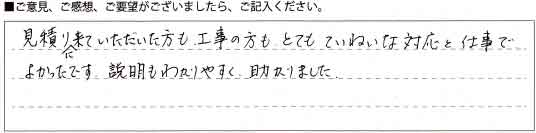 ■ご意見、ご感想、ご要望がございましたら、ご記入ください。
見積りに来ていただいた方も、工事の方も、とてもていねいな対応と仕事で
よかったです。説明もわかりやすく、助かりました。